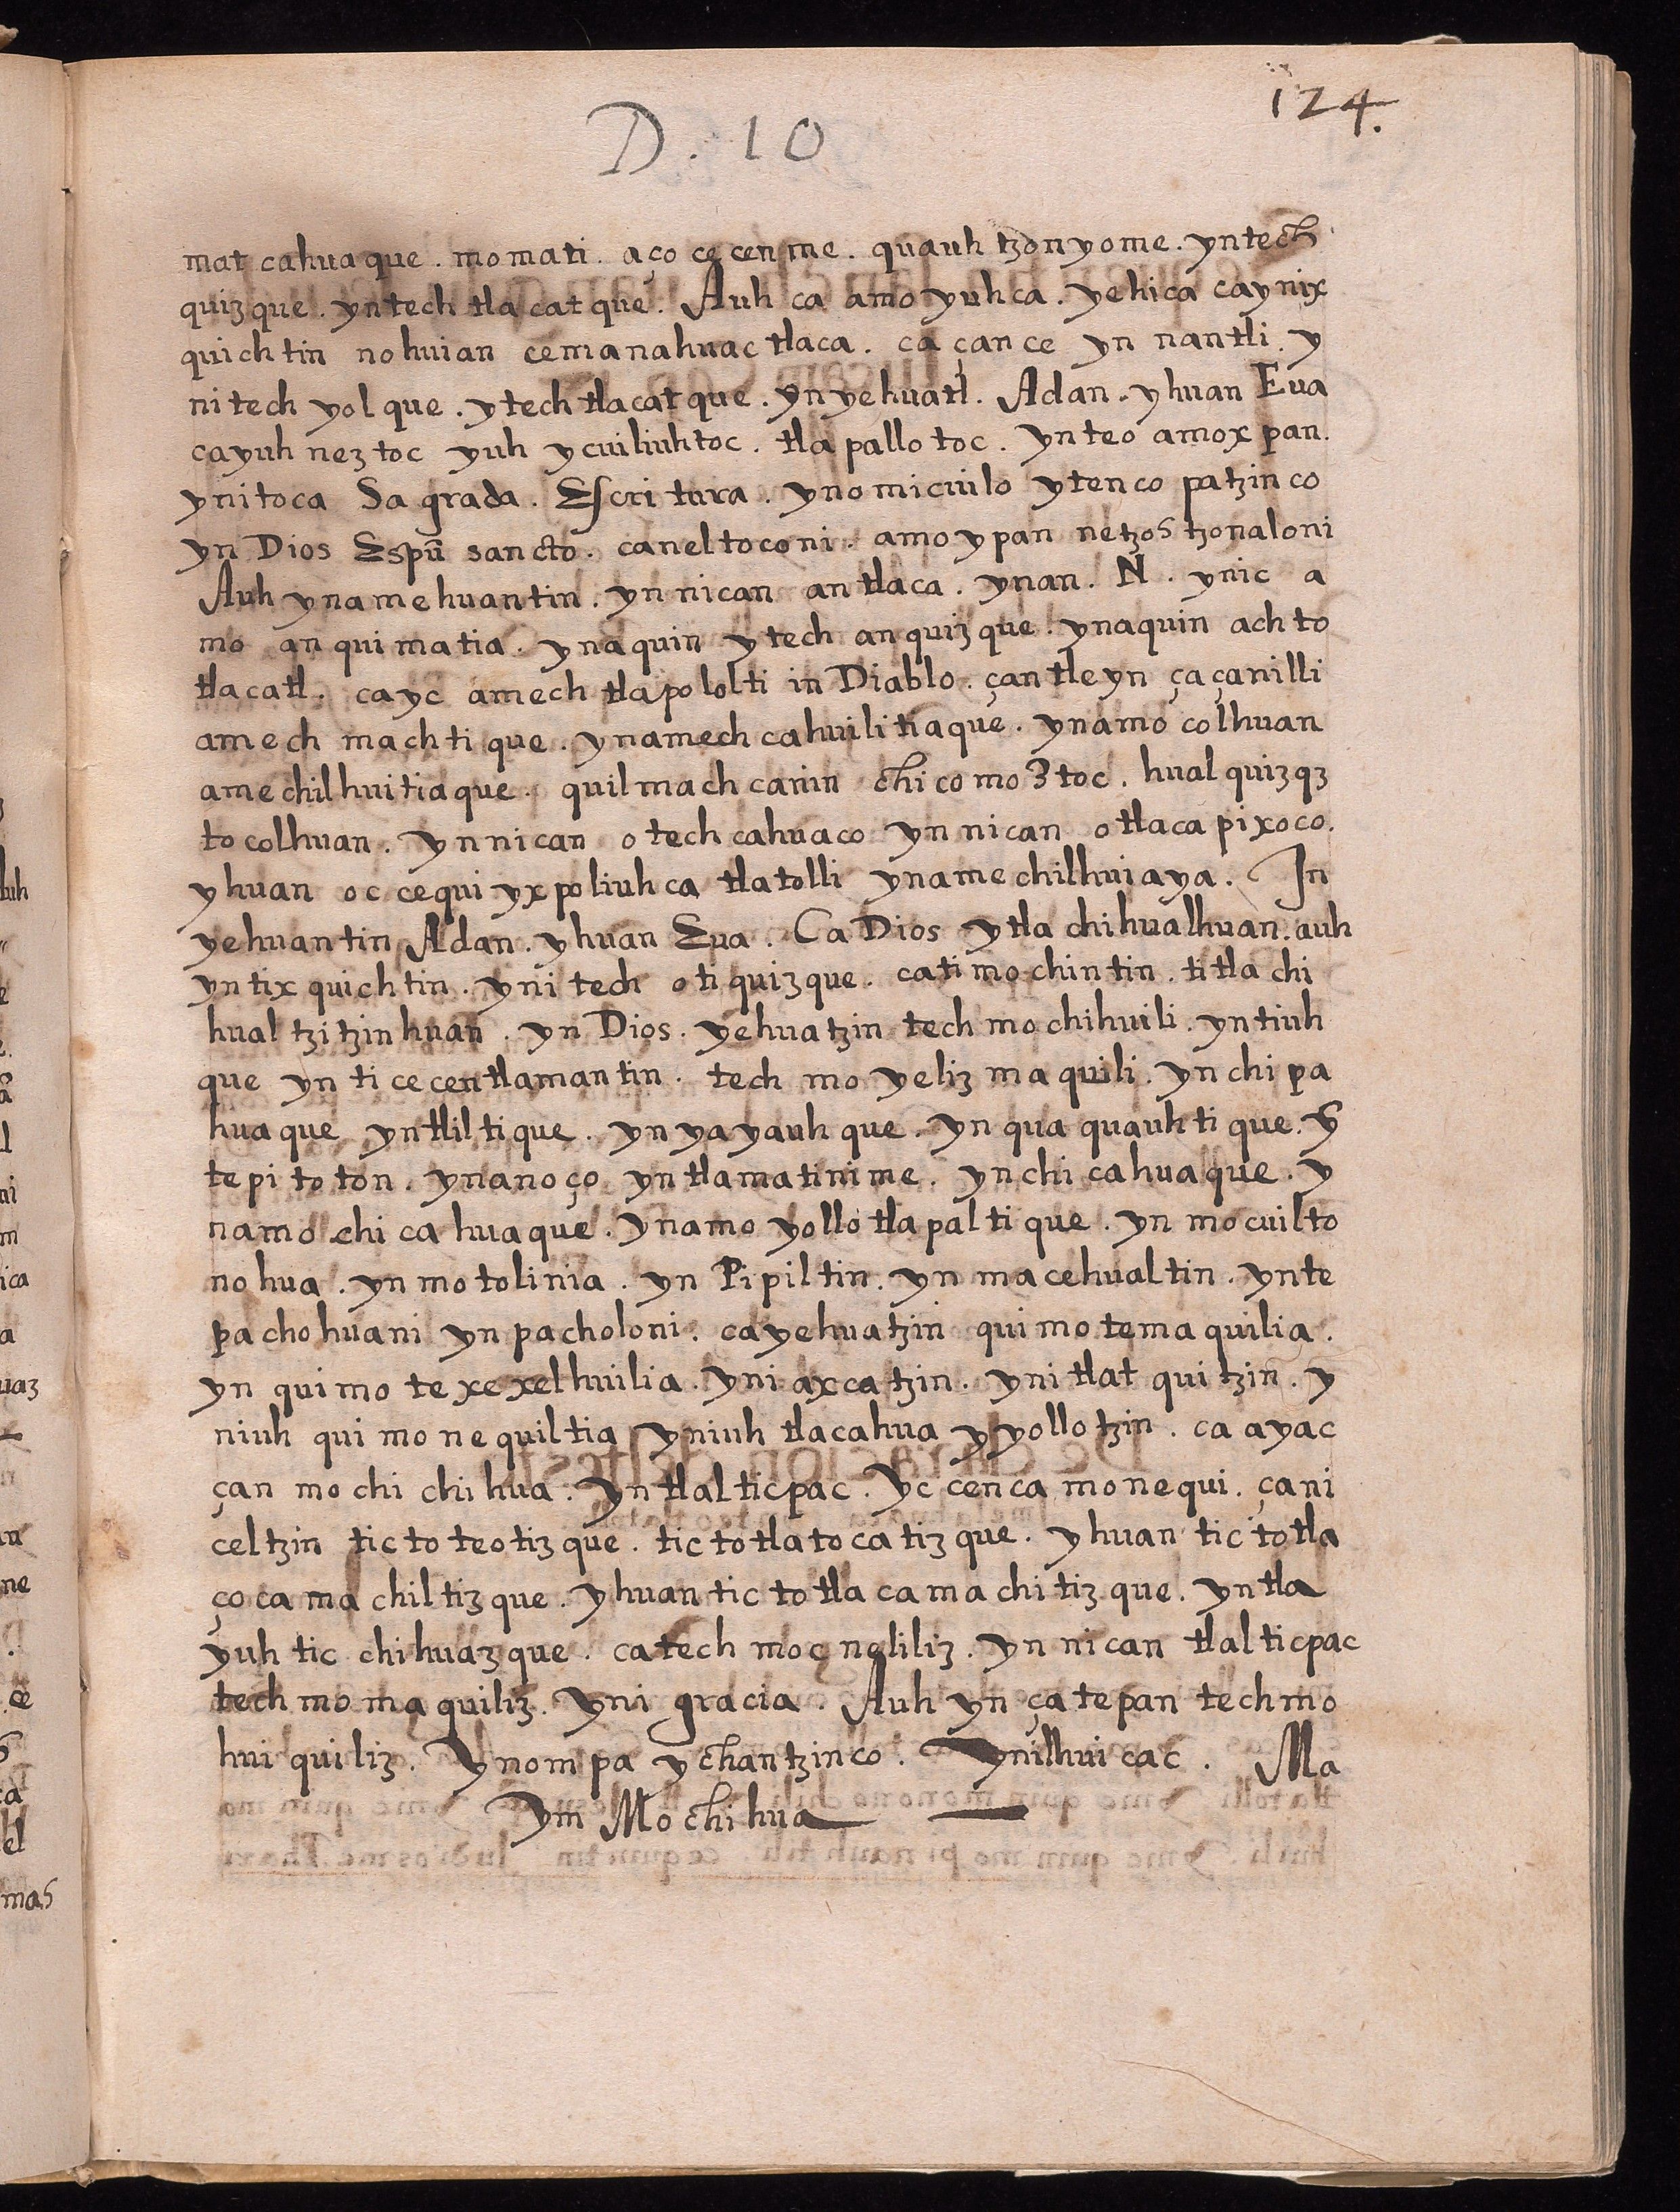 124.
D. 10
mat cahuaque. momati. aço ce cen me. quauh tzonyome. yntech
quizque. yntech tlacatque. Auh ca amo yuhca. yehica caynix
quichtin nohuian cemanahuac tlaca. ca çan ce yn nantli. y
nitech yolque. ytech tlacatque. ynyehuatl. Adan. yhuan Eua
cayuh neztoc yuh ycuiliuhtoc. tlapallotoc. ynteo amoxpan.
ynitoca Sagrada. Escritura. ynomicuilo ytencopatzinco
yn Dios Espũ sancto. caneltoconi. amo ypan netzostzonaloni
Auh ynamehuantin. yn nican antlaca. ynan. N. ynic a
mo anquimatia. ynaquin ytech anquizque. ynaquin achto
tlacatl. cayc amech tlapololti in Diablo. çan tleyn çaçanilli
amech machtique. ynamech cahuilitiaque. ynamocolhuan
amechilhuitiaque. quilmach canin chicomoztoc. hualquizqz
tocolhuan. yn nican otech cahuaco yn nican otlacapixoco.
yhuan oc cequi yxpoliuhca tlatolli ynamechilhuiaya. In
yehuantin Adan. yhuan Eua. Ca Dios ytlachihualhuan. auh
yntixquichtin. ynitech otiquizque. catimochintin. titlachi
hualtzitzinhuan. yn Dios. yehuatzin techmochihuili. yntiuh
que yn ticecentlamantin. techmoyelizmaquili. ynchipa
huaque yntliltique. ynyayauhque. yn quaquauhtique. ỹ
tepitoton. ynanoço yntlamatinime. ynchicahuaque. y
namo chicahuaque. ynamo yollotlapaltique. yn mocuilto
nohua. yn motolinia. yn Pipiltin. yn macehualtin. ynte
pachohuani yn pacholoni. cayehuatzin quimotemaquilia.
yn quimotexexelhuilia. yniaxcatzin. ynitlatquitzin. y
niuh quimonequiltia yniuh tlacahua yyollotzin. ca ayac
çan mochichihua. yn tlalticpac. yc cenca monequi. çani
celtzin tictoteotizque. tictotlatocatizque. yhuan tictotla
çocamachiltizque. yhuan tictotlacamachitizque. yntla
yuh ticchihuazque. catechmocneliliz. yn nican tlalticpac
techmomaquiliz. yni gracia. Auh yn çatepan techmo
huiquiliz. ynompa ychantzinco. ynilhuicac. Ma
ym Mochihua